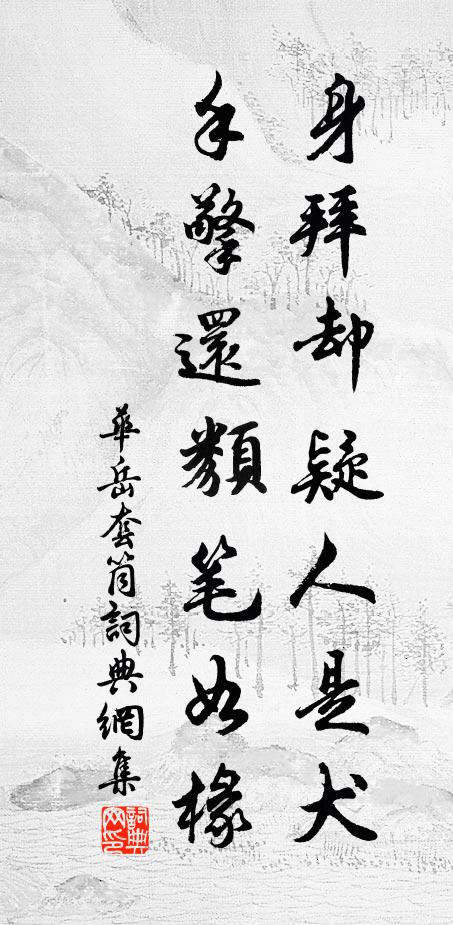 身拜却疑人是犬
手擎還類笔如椽
華岳套筒詞典網集
詞典网印